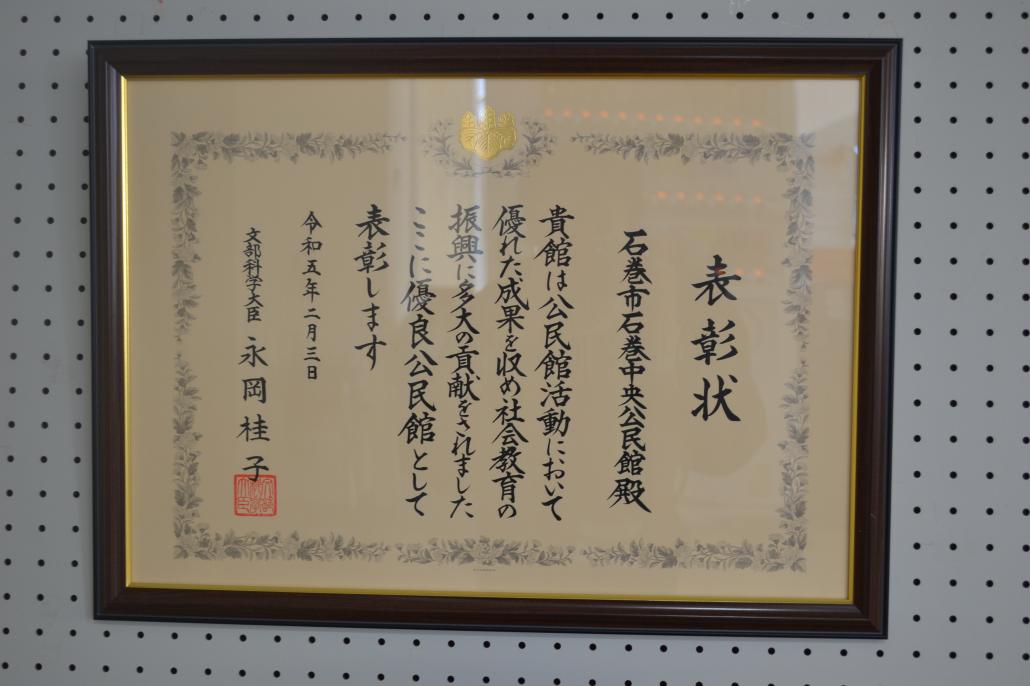 表彰状
石巻市石巻中央公民館殿
貴館は公民館活動において
優れた成果を収め社会教育の
振興に多大の貢献をされました
ここに優良公民館として
表彰します
令和五年二月三日
文部科学大臣 永岡桂子